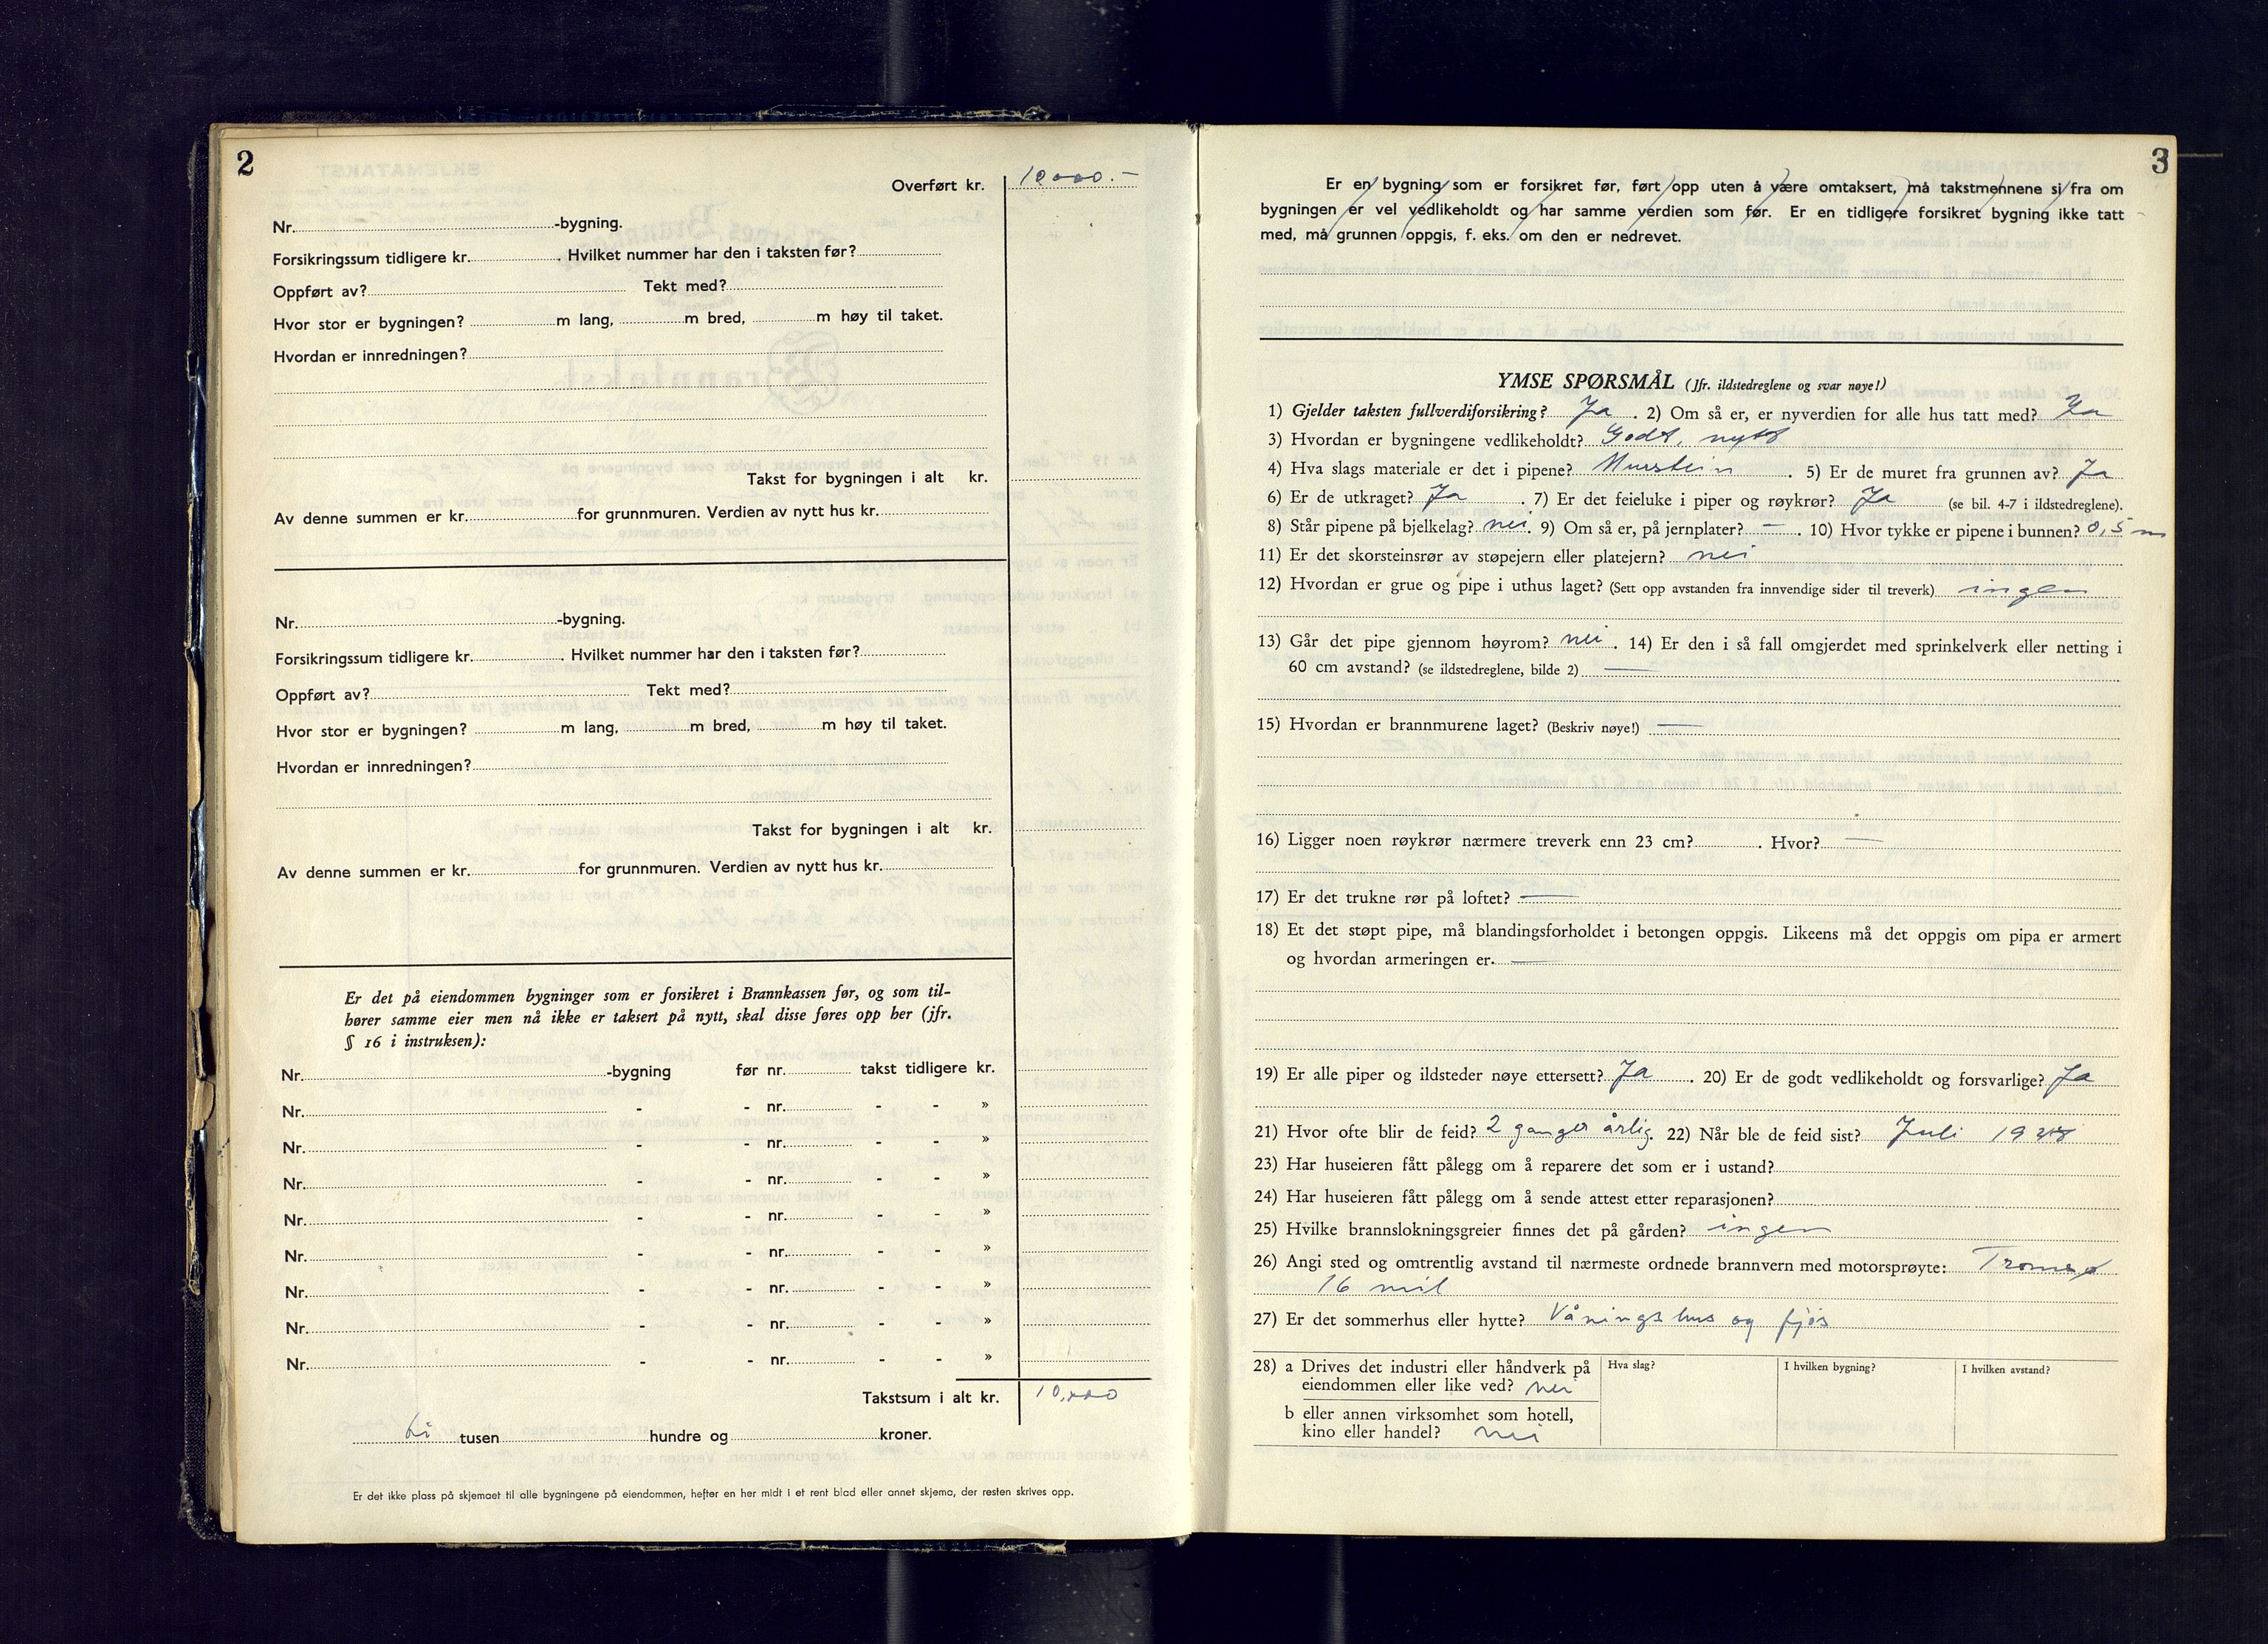 2
Overført kr. 10000.-
Nr. -bygning.
Forsikringssum tidligere kr. . Hvilket nummer har den i taksten før?
Oppført av? Tekt med?
Hvor stor er bygningen? m lang, m bred, m høy til taket.
Hvordan er innredningen?
Takst for bygningen i alt kr.
Av denne summen er kr. for grunnmuren. Verdien av nytt hus kr.
Nr. -bygning.
Forsikringssum tidligere kr. . Hvilket nummer har den i taksten før?
Oppført av? Tekt med?
Hvor stor er bygningen? m lang, m bred, m høy til taket.
Hvordan er innredningen?
Takst for bygningen i alt kr.
Av denne summen er kr. for grunnmuren. Verdien av nytt hus kr.
Er det på eiendommen bygninger som er forsikret i Brannkassen før, og som til-
hører samme eier men nå ikke er taksert på nytt, skal disse føres opp her (jfr.
§ 16 i instruksen):
Nr. -bygning før nr. takst tidligere kr.
Nr. - - nr. - - »
Nr. - - nr. - - »
Nr. - - nr. - - »
Nr. - - nr. - - »
Nr. - - nr. - - »
Nr. - - nr. - - »
Nr. - - nr. - - »
Nr. - - nr. - - »
Takstsum i alt kr. 10,000
ti tusen hundre og kroner.
Er det ikke plass på skjemaet til alle bygningene på eiendommen, hefter en her midt i et rent blad eller annet skjema, der resten skrives opp.
3
Er en bygning som er forsikret før, ført opp uten å være omtaksert, må takstmennene si fra om
bygningen er vel vedlikeholdt og har samme verdien som før. Er en tidligere forsikret bygning ikke tatt
med, må grunnen oppgis, f. eks. om den er nedrevet.
YMSE SPØRSMÅL (Jfr. ildstedreglene og svar nøye!)
1) Gjelder taksten fullverdiforsikring? Ja . 2) Om så er, er nyverdien for alle hus tatt med? Ja
3) Hvordan er bygningene vedlikeholdt? Godt, nytt
4) Hva slags materiale er det i pipene? Murstein . 5) Er de muret fra grunnen av? Ja
6) Er de utkraget? Ja . 7) Er det feieluke i piper og røykrør? Ja (se bil. 4-7 i ildstedreglene).
8) Står pipene på bjelkelag? nei. 9) Om så er, på jernplater? - . 10) Hvor tykke er pipene i bunnen? 0,5 m
11) Er det skorsteinsrør av støpejern eller platejern? nei
12) Hvordan er grue og pipe i uthus laget? (Sett opp avstanden fra innvendige sider til treverk) ingen
13) Går det pipe gjennom høyrom? nei . 14) Er den i så fall omgjerdet med sprinkelverk eller netting i
60 cm avstand? (se ildstedreglene, bilde 2) —
15) Hvordan er brannmurene laget? (Beskriv nøye!) —
16) Ligger noen røykrør nærmere treverk enn 23 cm? . Hvor? —
17) Er det trukne rør på loftet? —
18) Et det støpt pipe, må blandingsforholdet i betongen oppgis. Likeens må det oppgis om pipa er armert
og hvordan armeringen er. —
19) Er alle piper og ildsteder nøye ettersett? Ja . 20) Er de godt vedlikeholdt og forsvarlige? Ja
21) Hvor ofte blir de feid? 2 ganger årlig. 22) Når ble de feid sist? Juli
23) Har huseieren fått pålegg om å reparere det som er i ustand?
24) Har huseieren fått pålegg om å sende attest etter reparasjonen?
25) Hvilke brannslokningsgreier finnes det på gården? ingen
26) Angi sted og omtrentlig avstand til nærmeste ordnede brannvern med motorsprøyte: Tromsø
16 mil
27) Er det sommerhus eller hytte? Våningshus og fjøs
28) a Drives det industri eller håndverk på Hva slag? I hvilken bygning? I hvilken avstand?
eiendommen eller like ved? nei
b eller annen virksomhet som hotell,
kino eller handel? nei